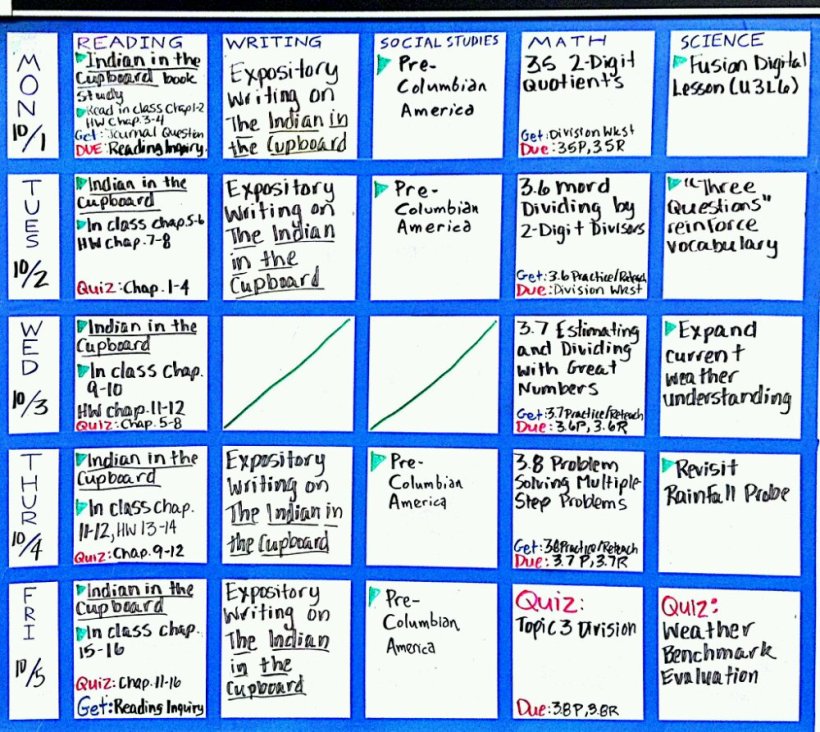 READING
WRITING
SOCIAL STUDIES
MATH
SCIENCE
MON
10/1
Indian in the
Cupboard book
study
Read in class Chap 1-2
HW Chap. 3-4
Get: Journal Question
DUE: Reading Inquiry
Expository
Writing on
The Indian in
the Cupboard
Pre-
Columbian
America
3.5 2-Digit
Quotients
Get: Division Wkst
Due: 3.5P, 3.5R
Fusion Digital
Lesson (U3L6)
TUES
10/2
Indian in the
Cupboard
In class chap. 5-6
HW chap. 7-8
Quiz: Chap. 1-4
Expository
Writing on
The Indian
in the
Cupboard
Pre-
Columbian
America
3.6 mord
Dividing by
2-Digit Divisors
Get: 3.6 Practice/Reteach
Due: Division Wkst
"Three
Questions"
reinforce
vocabulary
WED
10/3
Indian in the
Cupboard
In class Chap.
9-10
HW chap. 11-12
Quiz: Chap. 5-8
3.7 Estimating
and Dividing
with Great
Numbers
Get: 3.7 Practice/Reteach
Due: 3.6P, 3.6R
Expand
current
weather
understanding
THUR
10/4
Indian in the
Cupboard
In class chap.
11-12, HW 13-14
Quiz: Chap. 9-12
Expository
Writing on
The Indian in
the Cupboard
Pre-
Columbian
America
3.8 Problem
Solving Multiple-
Step Problems
Get: 3.8 Practice/Reteach
Due: 3.7P, 3.7R
Revisit
Rainfall Probe
FRI
10/5
Indian in the
Cupboard
In class chap.
15-16
Quiz: Chap. 11-16
Get: Reading Inquiry
Expository
Writing on
The Indian
in the
Cupboard
Pre-
Columbian
America
Quiz:
Topic 3 Division
Due: 3.8P, 3.8R
Quiz:
Weather
Benchmark
Evaluation